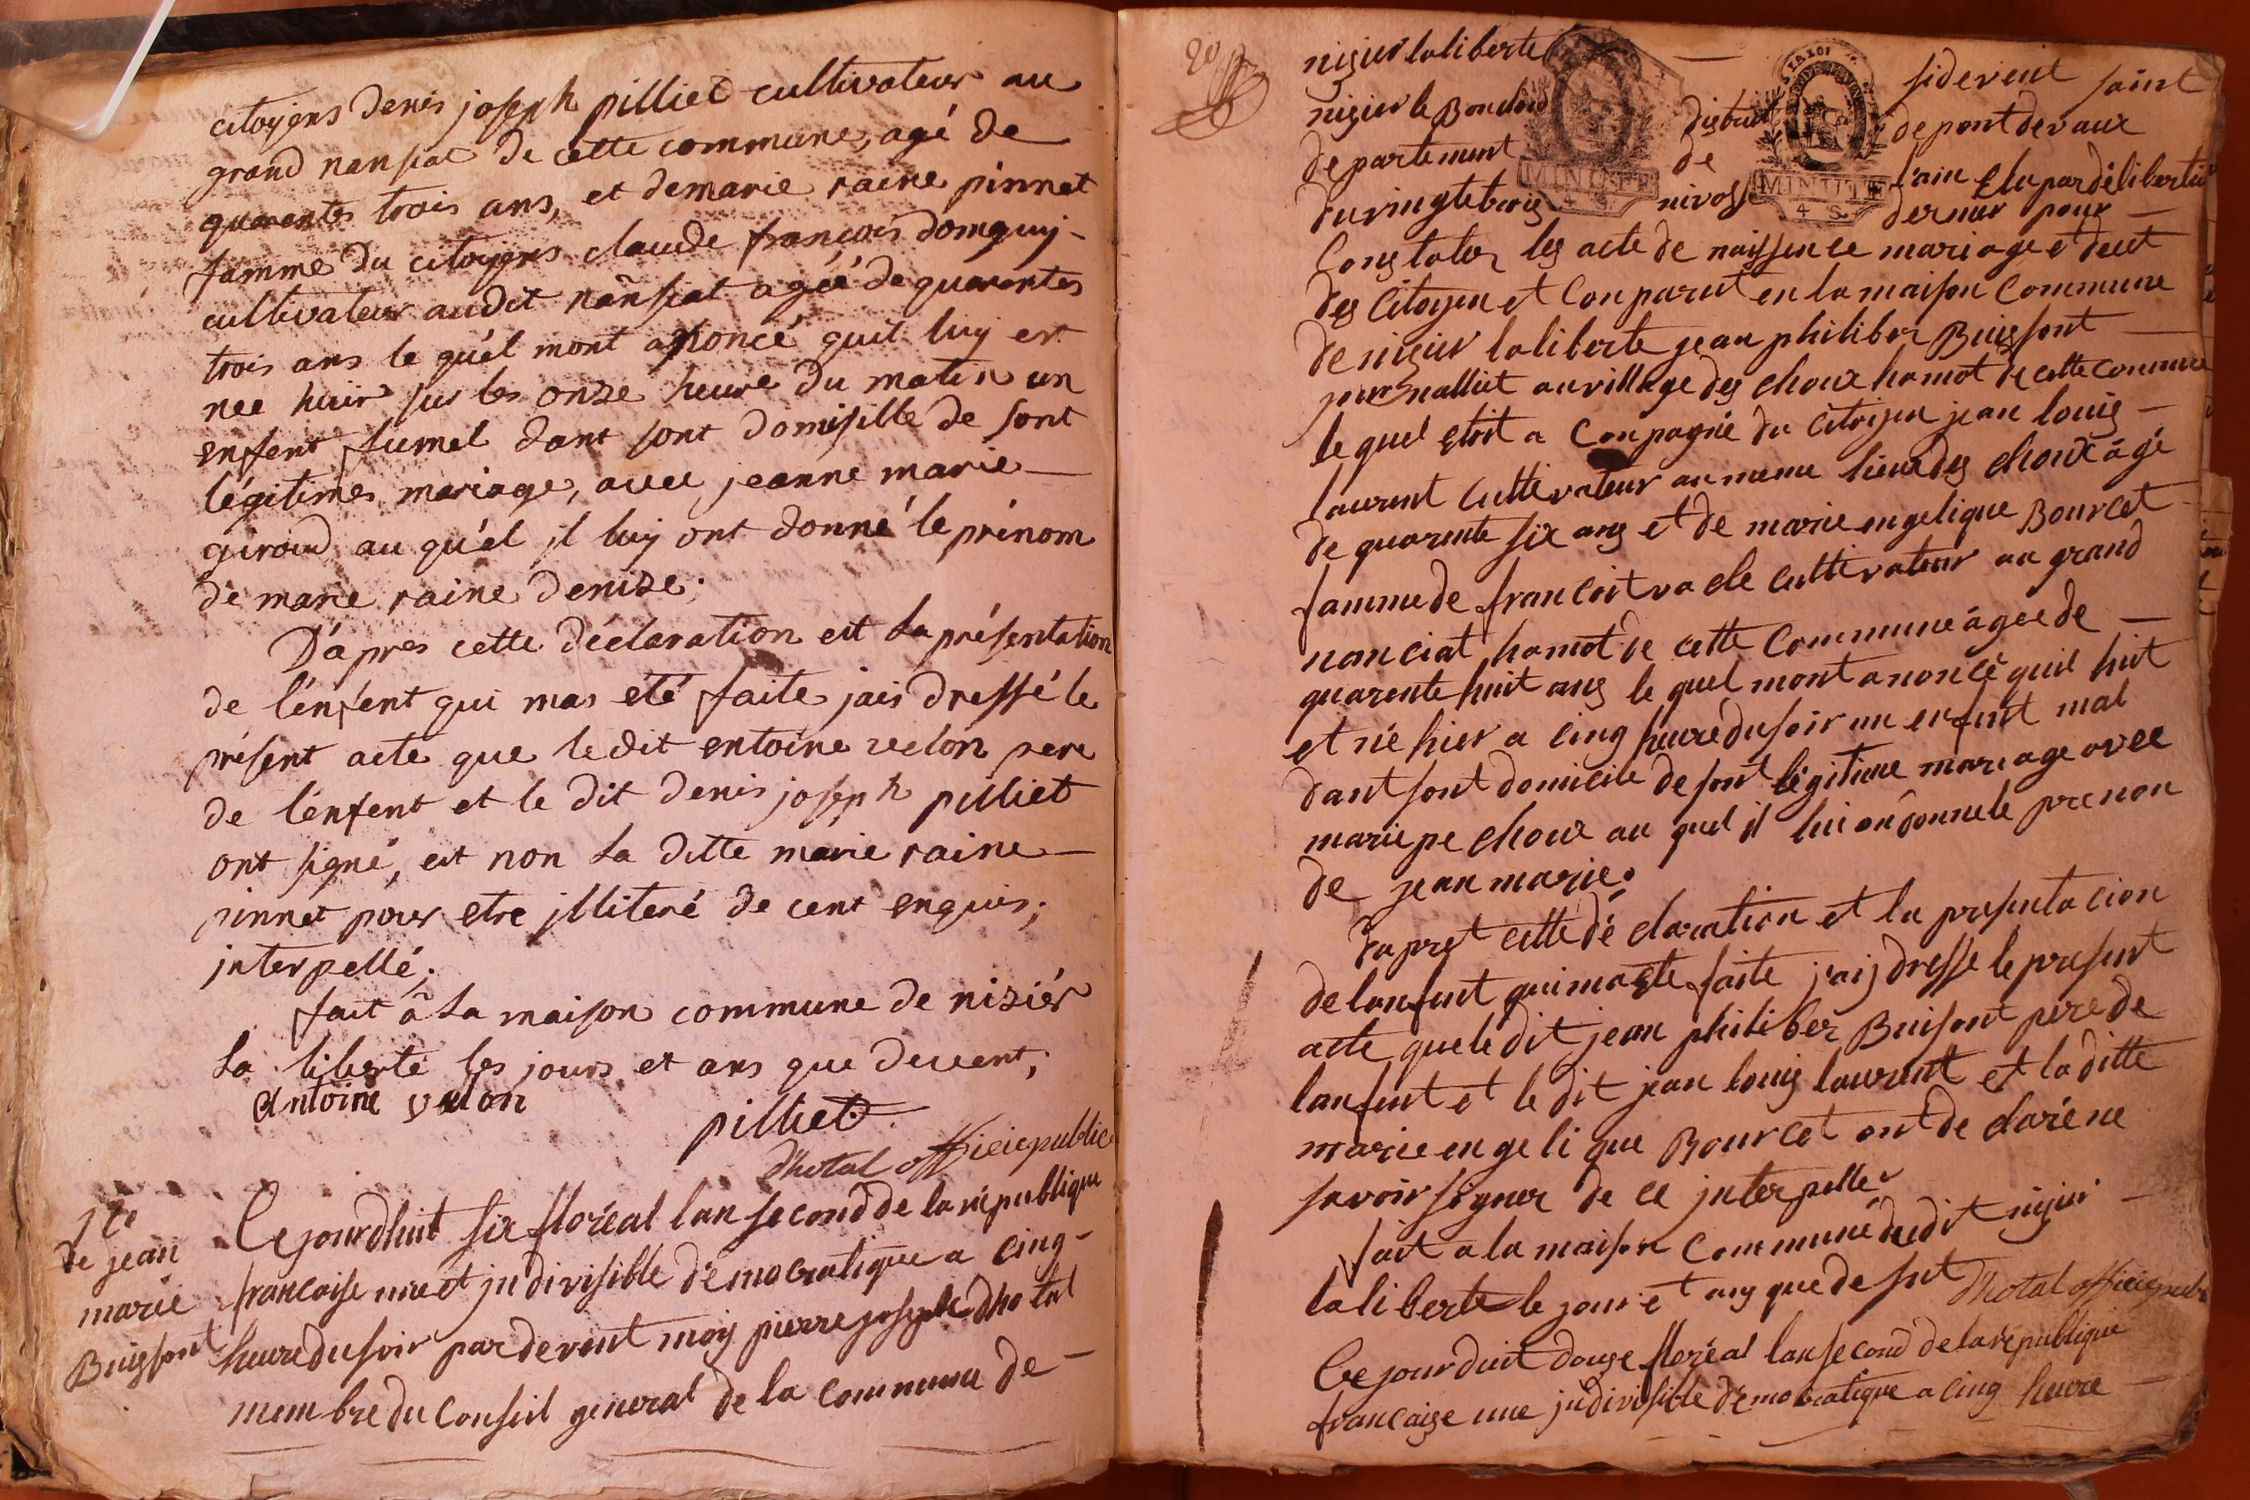 citoyens denis joseph pilliet cultivateur au
grand nansiat de cette commune, agé de
quarentes trois ans, et demarie raine pinnet
famme du citoyens claude françois domguij-
cultivateur audit nansiat agéé de quarentes
trois ans le quél mont anoncé quil luy est
nee huir sur les onze heure du matin un
enfent fumel dant sont domisille de sont
légitimes mariage, avec jeanne marie
giroud au quél jl luy ont donné le prénom
de marie raine denize;
D'apres cette déclaration est la présentation
de l'énfent qui mas eté faite jais dressé le
présent acte que ledit entoine velon pere
de lénfent et le dit denis joseph pilliet
ont signé, est non la ditte marie raine
pinnet pour etre jlliteré de cent enquis;
jnterpellé;
fait â la maison commune de niziér
la liberté les jours et ans que devent;
Antoine velon
pilliet
Dhotal officie public
de jean
marie
Buissont
Ce jourdhuit six floréal lan second de la république
francaise une et jndivisible démocratique a cinq-
heure du soir pardevent moy pierre joseph dhotal
membre du conseil general de la commune de-
20
nizier laliberté sidevent saint
nizier le Bouchou district de pontdevaux
departement de l'ain elu par délibertion
du vingt nivosse dernier pour
MINUTE
4 S
MINUTE
4 S
Constater les acte de naissence mariage et deces
des citoyen et conparut en la maison commune
de nizier laliberte jean philiber Buissont
journalliet au village des choux hamot de cette commune
le quel etoit a Conpagnié du citoijen jean louis
laurent cultivateur au meme lieux des choux âgé
de quarente six ans et de marie engelique Bourcet
famme de francoit vacle cultivateur au grand
nanciat hamot de cette commune âgée de
quarente huit ans le quel mont anoncé quil huit
et né hier a cinq heure du soir un enfent mal
dant sont domicile de sont légitime mariage avec
marie pechoux au quel jl lui on donne le prenon
de jean marie.
Dapret cette déclaration et la presentacion
de lanfent qui ma ete faite j'aij dresse le present
acte que ledit jean philiber Buisont pere de
lanfent et le dit jean louis laurent et la ditte
marie engelique Bourcet ont declaré ne
savoir signer de ce jnterpeller
fait a la maison commune dudit nizier
laliberte le jour et ans que desut Dhotal officie public
Ce jourduit douze floréal lan second de la république
francaize une jndivisible démocratique a cinq heure